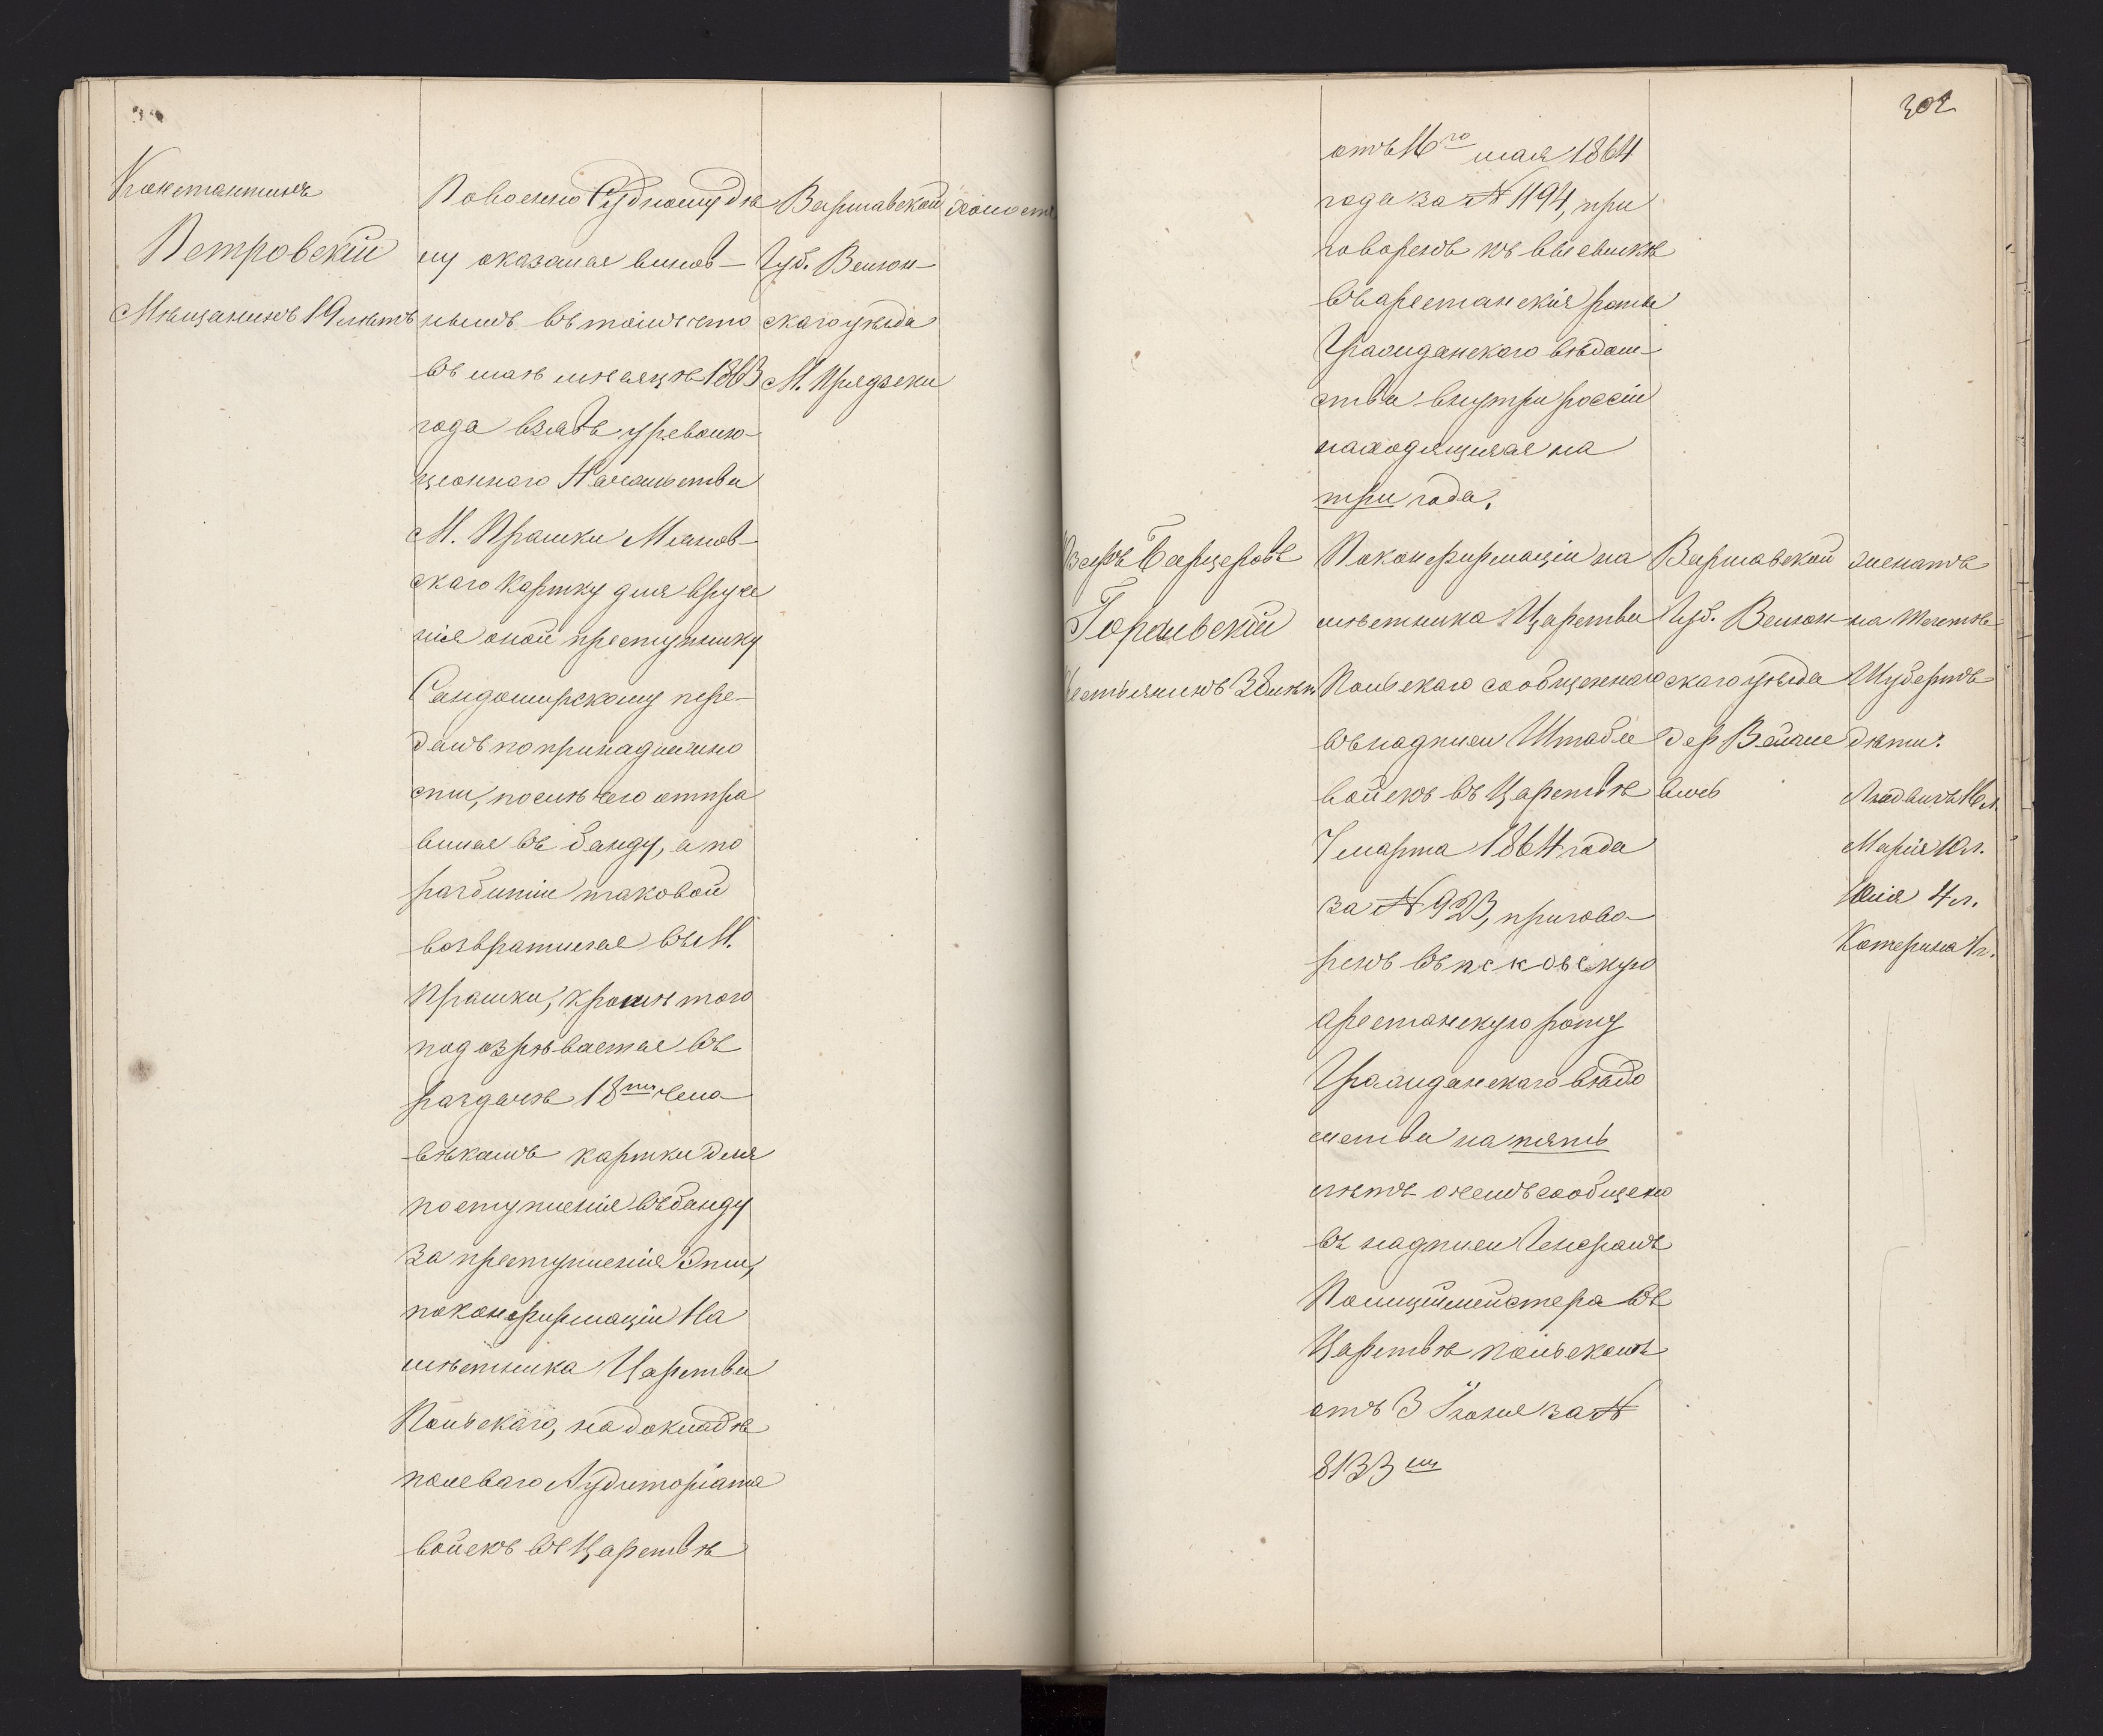 Константинъ
Петровскій
Мѣщанинъ 19 лѣтъ
По военно Судному дѣ
лу оказался винов-
нымъ въ томъ что
въ маѣ мѣсяцѣ 1863
года взявъ у револю-
ціоннаго Начальства
М. Прашки Мленов-
скаго Картку для вруче
нія оной преступнику
Сандомирскому пере-
далъ по принадлежно
сти, послѣ чего отпра
вился въ банду, а по
разбитіи таковой
возвратился въ М.
Прашки, кромѣ того
подозрѣвается въ
раздачѣ 18ти чело
вѣкамъ картки для
поступленія въ банду
за преступленія эти,
по конфирмаціи На
мѣстника Царства
Польскаго, на докладѣ
полеваго Аудиторіата
войскъ въ Царствѣ
Варшавской
Губ. Велюн-
скаго уѣзда
М.
холостъ
302
отъ 16го мая 1864
года за № 1194, при
говоренъ къ высылкѣ
въ арестанскія роты
Гражданскаго вѣдом-
ства внутри россіи
находящіяся на
три года.
Горальскій
Крестьянинъ 38 лѣтъ
По конфирмаціи на
мѣстника Царства
Польскаго сообщеннаго
въ надписи Штаба
войскъ въ Царствѣ
7 марта 1864 года
за № 923, пригово
ренъ въ псковскую
арестанскую роту
Гражданскаго вѣдо
мства на пять
лѣтъ о чемъ сообщено
въ надписи Генералъ
Полицiймейстера въ
Царствѣ польскомъ
отъ 3 Іюня за №
8133 мъ
Варшавской
Губ. Велюн
скаго уѣзда
дер
женатъ
на
Шубертъ
дѣти:
Людвигъ 16 л.
Марія 10 л.
Юлія 4 л.
Катерина 1 г.